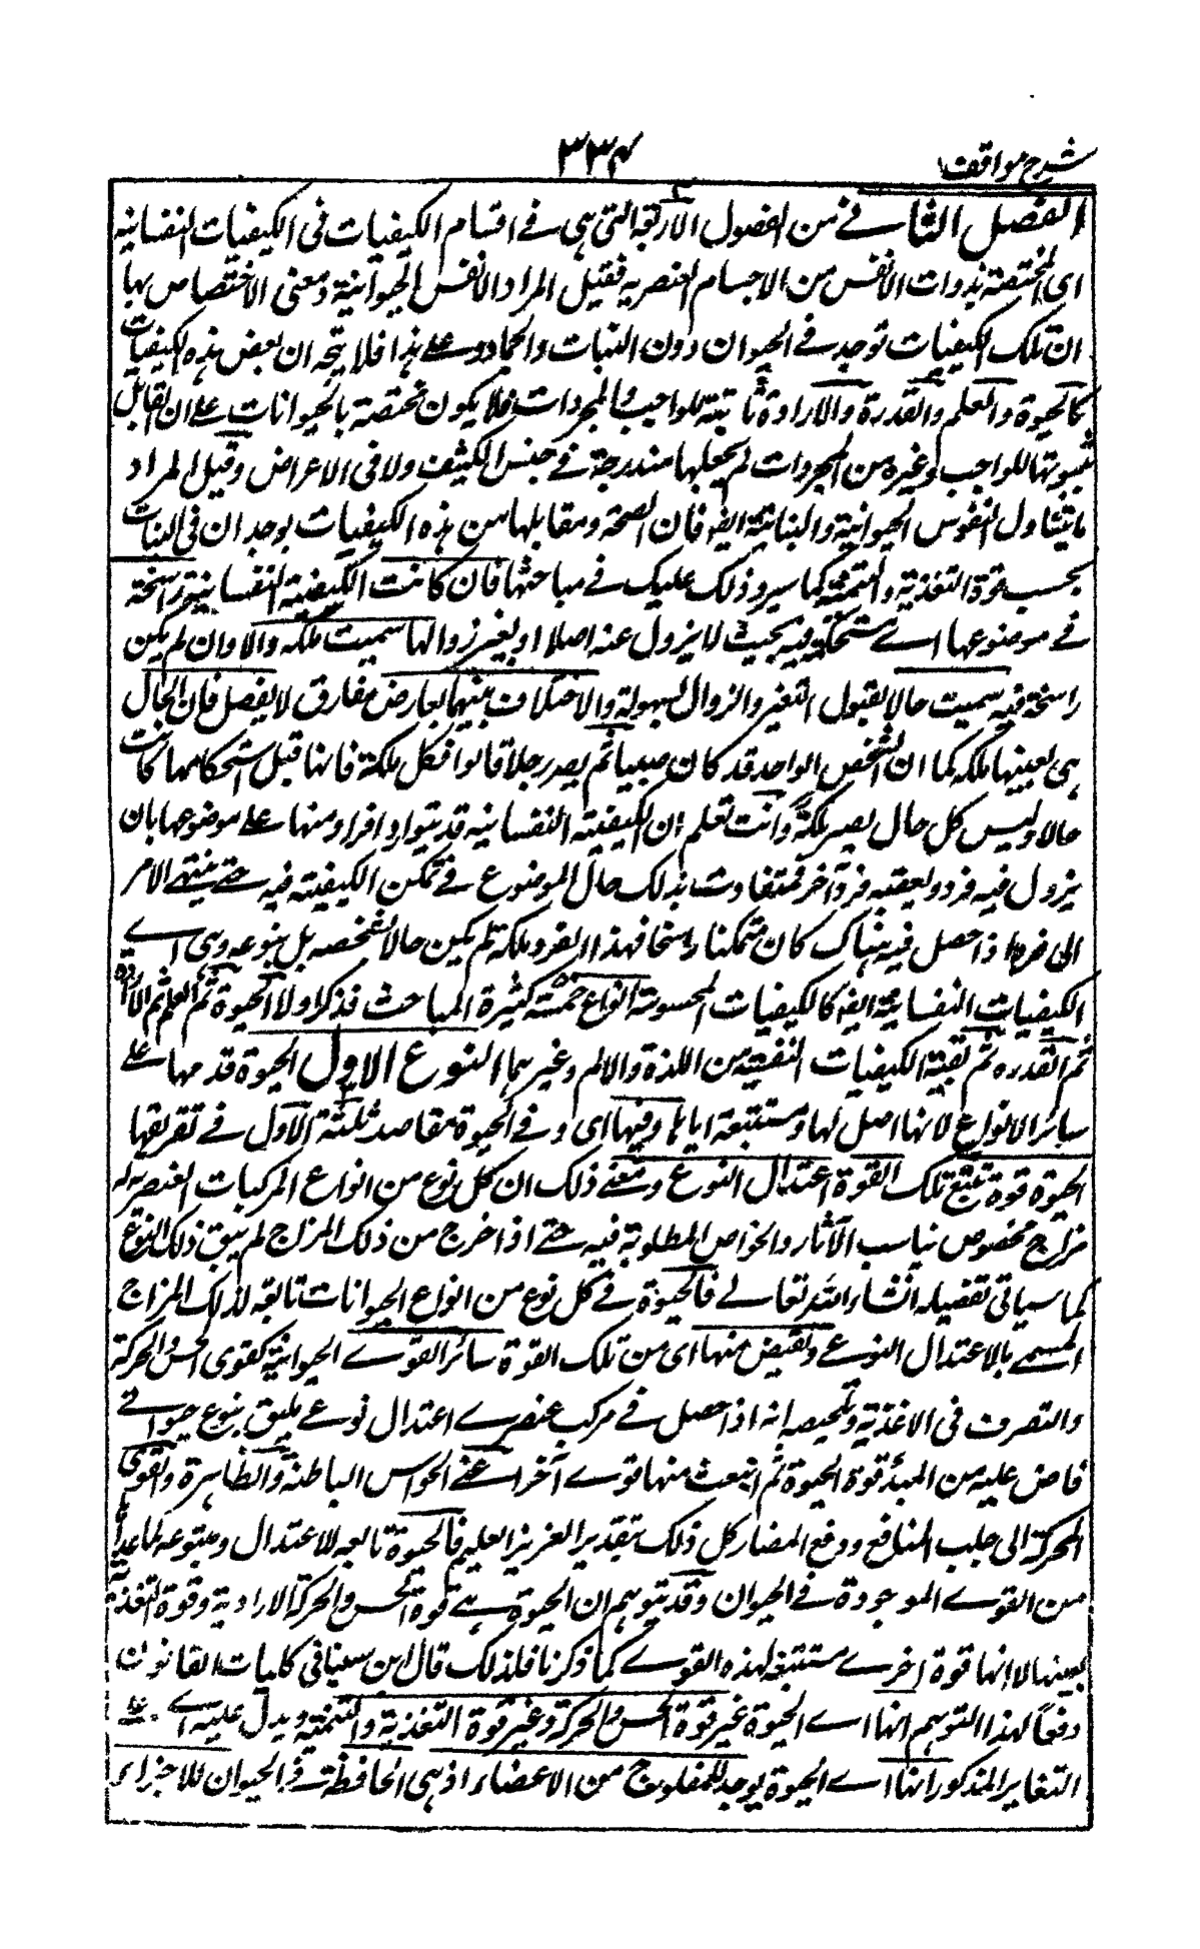 شرح مواقف
۳۳۴
الفصل الثانی من الفصول الاربعة التی هی فی اقسام الکیفیات فی الکیفیات النفسانیة
ای المختصة بذوات الانفس من الاجسام العنصریة فقیل المراد الانفس الحیوانیة ومعنی الاختصاص بها
ان تلک الکیفیات توجد فی الحیوان دون النبات والجماد وعلی هذا فلا یتجه ان بعض هذه الکیفیات
کالحیوة والعلم والقدرة والارادة ثابتة للواجب والمجردات فلا یکون مختصة بالحیوانات علی ان القائل
بثبوتها للواجب وغیره من المجردات لم یجعلها مندرجة فی جنس الکیف ولا فی الاعراض وقیل المراد
ما یتناول النفوس الحیوانیة والنباتیة ایضا فان الصحة ومقابلها من هذه الکیفیات یوجدان فی النبات
بحسب قوة التغذیة والتنمیة کما سیرد ذلک علیک فی مباحثها فان کانت الکیفیة النفسانیة راسخة
فی موضوعها ای مستحکمة فیه بحیث لا یزول عنه اصلا او یعسر زوالها سمیت ملکة والا وان لم یکن
راسخة فیه سمیت حالا لقبول التغیر والزوال بسهولة والاختلاف بینهما بعارض مفارق لا بفصل فان الحال
هی بعینها ملکة کما ان الشخص الواحد قد کان صبیا ثم یصیر رجلا قالوا فکل ملکة فانها قبل استحکامها کانت
حالا ولیس کل حال یصیر ملکة وانت تعلم ان الکیفیة النفسانیة قد یتوارد افراد منها علی موضوعها بان
یزول فیه فرد ویعقبه فرد آخر فیتفاوت بذلک حال الموضوع فی تمکن الکیفیة فیه حتی ینتهی الامر
الی فرد اذا حصل فیه هناک کان متمکنا راسخا فهذا الفرد ملکة لم یکن حالا بشخصه بل بنوعه وهی ای
الکیفیات النفسانیة ایضا کالکیفیات المحسوسة انواع خمسة کثیرة المباحث فذکر اولا الحیوة ثم العلم ثم الارادة
ثم القدرة ثم بقیة الکیفیات النفسیة من اللذة والالم وغیرهما النوع الاول الحیوة قدمها علی
سائر الانواع لانها اصل لها ومستتبعة ایاها وفیها ای وفی الحیوة مقاصد ثلثة الاول فی تعریفها
الحیوة قوة تتبع تلک القوة اعتدال النوع ومعنی ذلک ان کل نوع من انواع المرکبات العنصریة له
مزاج مخصوص یناسب الآثار والخواص المطلوبة فیه حتی اذا خرج من ذلک المزاج لم یبق ذلک النوع
کما سیاتی تفصیله انشاء الله تعالی فالحیوة فی کل نوع من انواع الحیوانات تابعة لذلک المزاج
المسمی بالاعتدال النوعی وتفیض منها ای من تلک القوة سائر القوی الحیوانیة کقوی الحس والحرکة
والتصرف فی الاغذیة وتلخیصه انه اذا حصل فی مرکب عنصری اعتدال نوعی یلیق بنوع حیوانی
فاض علیه من المبدء قوة الحیوة ثم انبعث منها قوی آخر اعنی الحواس الباطنة والظاهرة والقوی
المحرکة الی جلب المنافع ودفع المضار کل ذلک بتقدیر العزیز العلیم فالحیوة تابعة للاعتدال ومتبوعة لما عداها
من القوی الموجودة فی الحیوان وقد یتوهم ان الحیوة هی قوة الحس والحرکة الارادیة وقوة التغذیة
بعینها لا انها قوة اخری مستتبعة لهذه القوی کما ذکرنا فلذلک قال ابن سینا فی کلیات القانون
دفعا لهذا التوهم انها ای الحیوة غیر قوة الحس والحرکة وغیر قوة التغذیة والتنمیة ویدل علیه ای علی
التغایر المذکور انها ای الحیوة یوجد للمفلوج من الاعضاء اذ هی الحافظة فی الحیوان للاجزاء